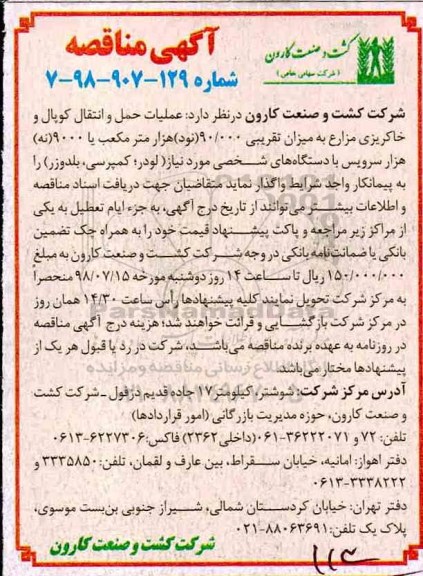 کشت و صنعت کارون
(شرکت سهامی خاص)
آگهی مناقصه
شماره ۱۲۹-۹۰۷-۹۸-۷
شرکت کشت و صنعت کارون درنظر دارد: عملیات حمل و انتقال کوپال و
خاکریزی مزارع به میزان تقریبی ۹۰/۰۰۰(نود)هزار متر مکعب یا ۹۰۰۰(نه)
هزار سرویس با دستگاه‌های شخصی مورد نیاز( لودر؛ کمپرسی، بلدوزر) را
به پیمانکار واجد شرایط واگذار نماید متقاضیان جهت دریافت اسناد مناقصه
و اطلاعات بیشتر می‌توانند از تاریخ درج آگهی، به جزء ایام تعطیل به یکی
از مراکز زیر مراجعه و پاکت پیشنهاد قیمت خود را به همراه چک تضمین
بانکی یا ضمانت‌نامه بانکی در وجه شرکت کشت و صنعت کارون به مبلغ
۱۵۰/۰۰۰/۰۰۰ ریال تا ساعت ۱۴ روز دوشنبه مورخه ۹۸/۰۷/۱۵ منحصراً
به مرکز شرکت تحویل نمایند کلیه پیشنهادها رأس ساعت ۱۴/۳۰ همان روز
در مرکز شرکت بازگشایی و قرائت خواهند شد؛ هزینه درج آگهی مناقصه
در روزنامه به عهده برنده مناقصه می‌باشد، شرکت در رد یا قبول هر یک از
پیشنهادها مختار می‌باشد.
آدرس مرکز شرکت: شوشتر، کیلومتر۱۷ جاده قدیم دزفول ـ شرکت کشت
و صنعت کارون، حوزه مدیریت بازرگانی (امور قراردادها)
تلفن: ۷۲ و ۳۶۲۲۲۰۷۱-۰۶۱(داخلی۲۳۶۲) فاکس:۶۲۲۷۳۰۶-۰۶۱۳
دفتر اهواز: امانیه، خیابان سقراط، بین عارف و لقمان، تلفن:۳۳۳۵۸۵۰ و
۳۳۳۸۲۲۲-۰۶۱۳
دفتر تهران: خیابان کردستان شمالی، شیراز جنوبی بن‌بست موسوی،
پلاک یک تلفن:۸۸۰۶۳۶۹۱-۰۲۱
شرکت کشت و صنعت کارون
ParsNamadData